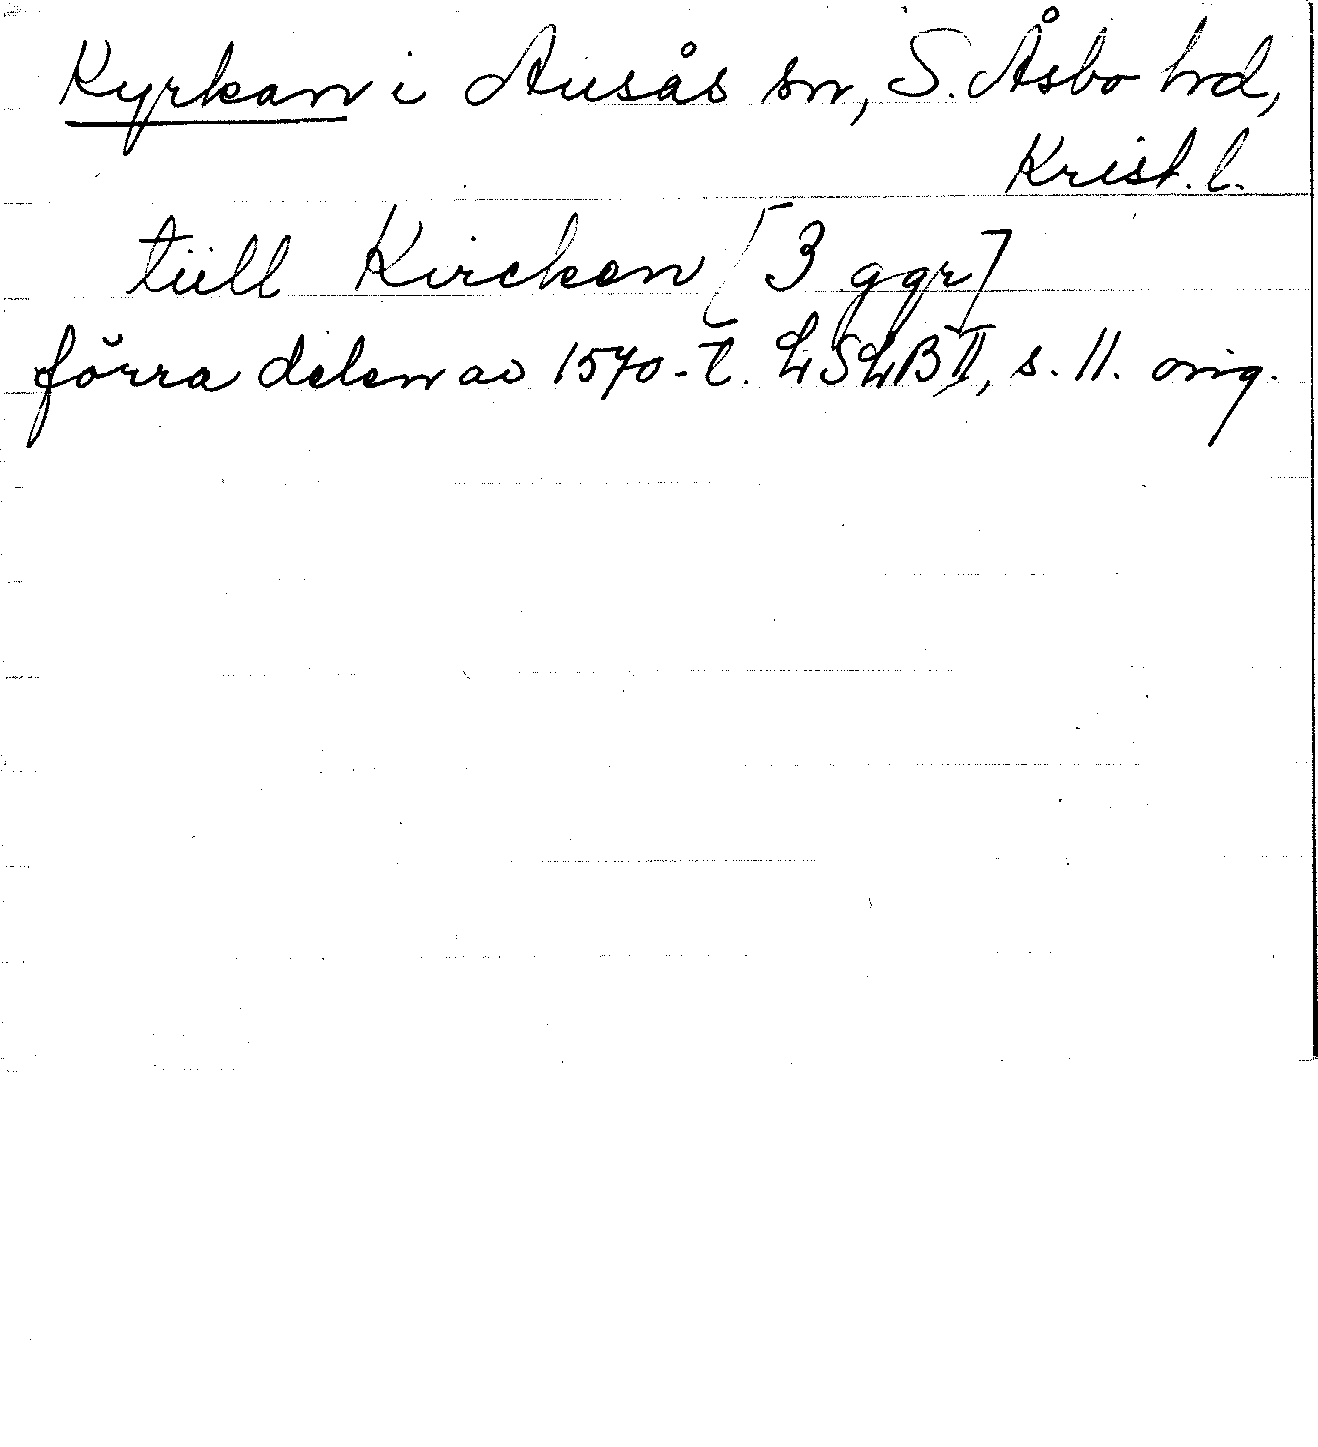 Kyrkan i Ausås sn, S. Åsbo hd,
Krist. l.
tiill Kircken [3 ggr]
förra delen av 1570-t. LSLB II, s. 11. orig.